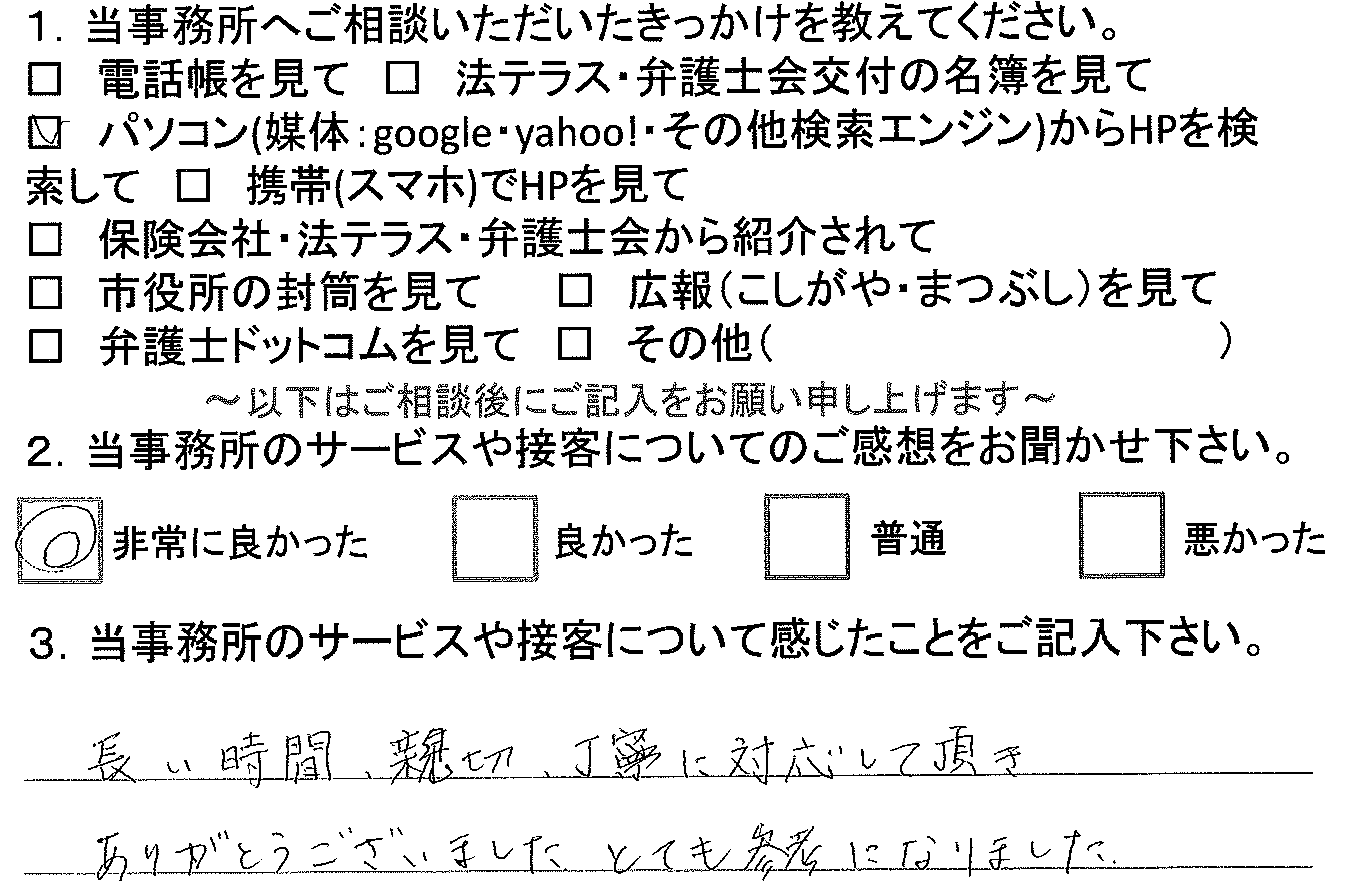 １．当事務所へご相談いただいたきっかけを教えてください。
□ 電話帳を見て □ 法テラス・弁護士会交付の名簿を見て
☑ パソコン(媒体：google・yahoo!・その他検索エンジン)からHPを検
索して □ 携帯(スマホ)でHPを見て
□ 保険会社・法テラス・弁護士会から紹介されて
□ 市役所の封筒を見て □ 広報（こしがや・まつぶし）を見て
□ 弁護士ドットコムを見て □ その他（ ）
～以下はご相談後にご記入をお願い申し上げます～
２．当事務所のサービスや接客についてのご感想をお聞かせ下さい。
◎ 非常に良かった □ 良かった □ 普通 □ 悪かった
３．当事務所のサービスや接客について感じたことをご記入下さい。
長い時間、親切、丁寧に対応して頂き
ありがとうございました とても参考になりました.